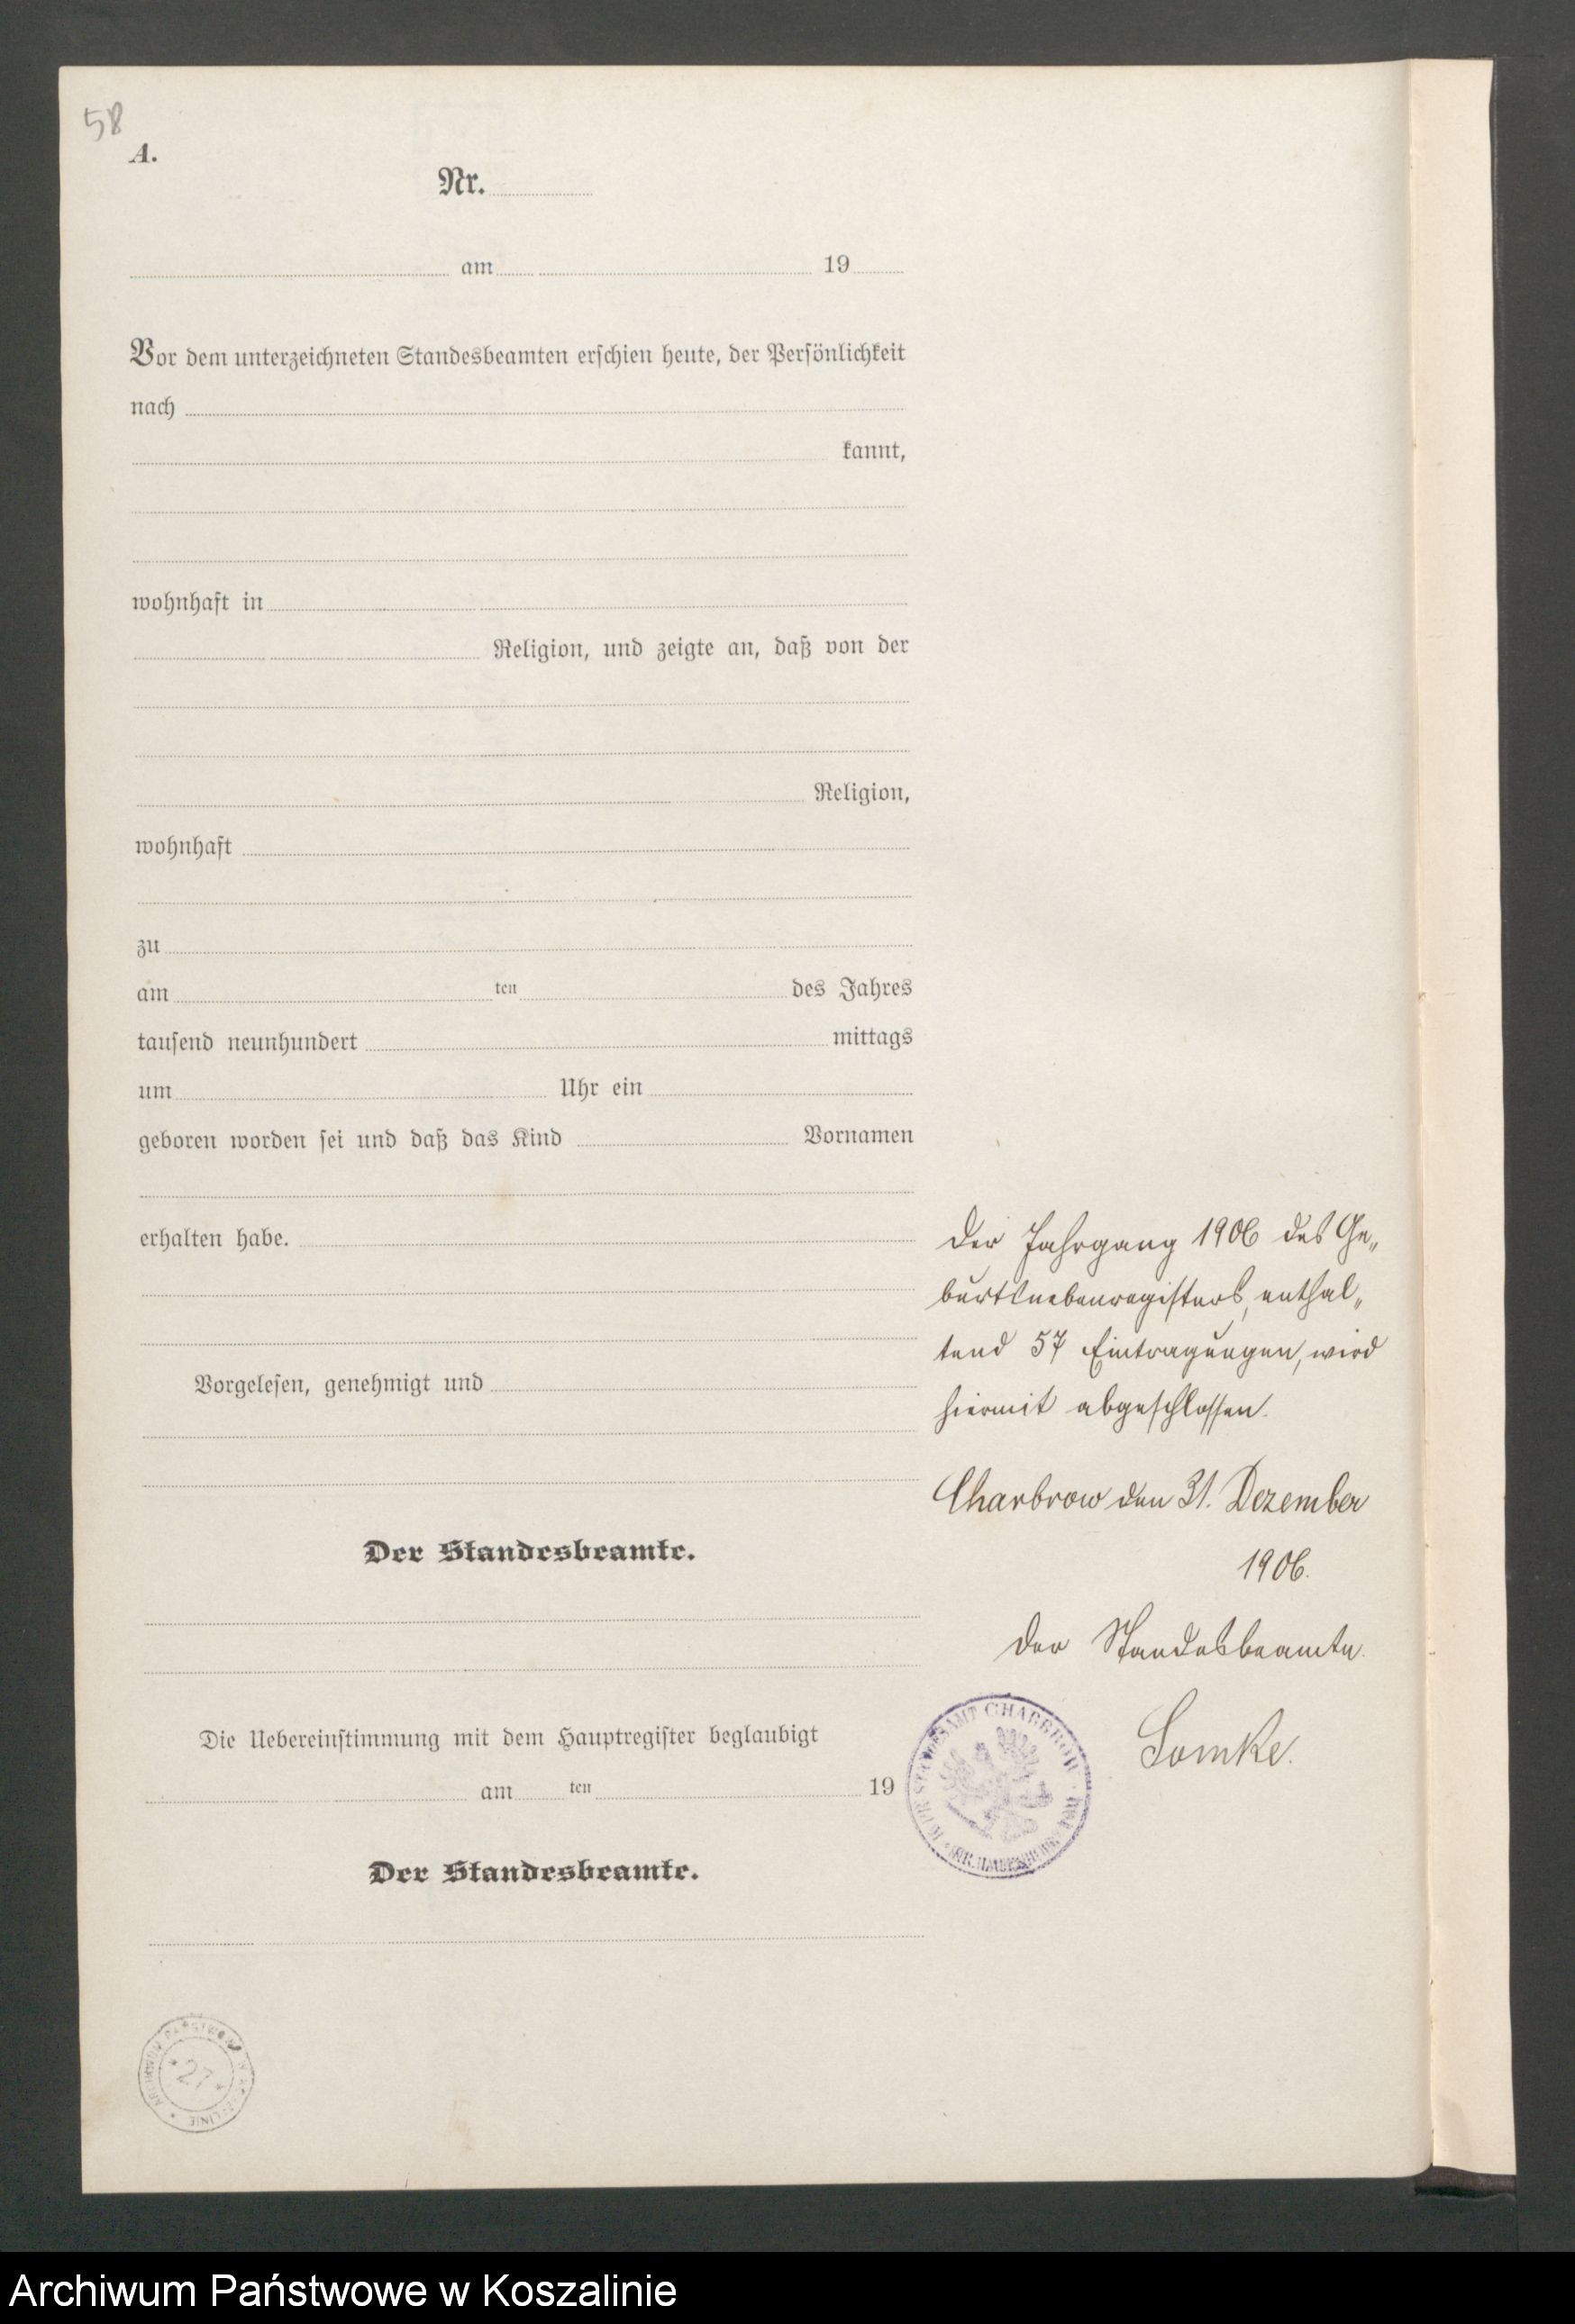 58
A.
Nr.
am 19
Vor dem unterzeichneten Standesbeamten erschien heute, der Persönlichkeit
nach
kannt,
wohnhaft in
Religion, und zeigte an, daß von der
Religion,
wohnhaft
zu
am ten des Jahres
tausend neunhundert mittags
um Uhr ein
geboren worden sei und daß das Kind Vornamen
erhalten habe.
Vorgelesen, genehmigt und
Der Standesbeamte.
Die Uebereinstimmung mit dem Hauptregister beglaubigt
am ten 19
Der Standesbeamte.
Der Jahrgang 1906 des Ge„
burtsnebenregisters, enthal„
tend 57 Eintragungen, wird
hiermit abgeschlossen.
Charbrow den 31. Dezember
1906.
Der Standesbeamte.
Lomke.
STANDESAMT CHARBROW
ARCHIWUM PAŃSTWOWE
*27*
Archiwum Państwowe w Koszalinie